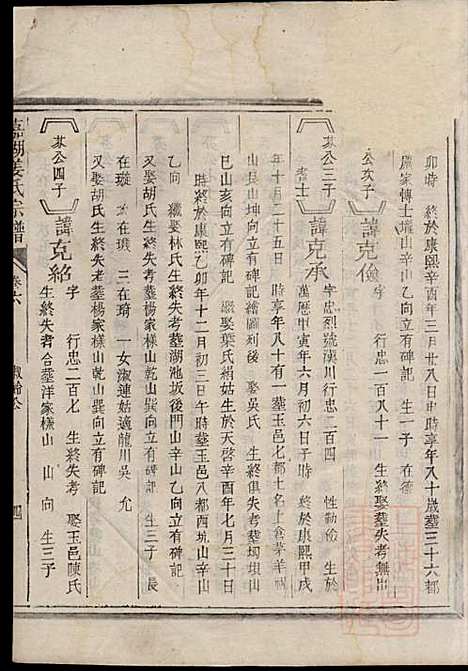 卯時 終於康熙辛酉年三月廿八日申時享年八十歲塟三十六都
廣家傳士壠山辛山乙向立有碑記 生一子 在德
公次子 諱克儉 字 行忠一百八十一 生終娶塟失考無出
蔡公三子 諱克承 字忠烈號漢川行忠二百四 性觥 生於
萬歷甲寅年六月初六日子時 終於康熙甲戌
年十月二十五日 時享年八十有一塟玉邑七都七名上倉茅羊
山艮山坤向立有碑記繪圖列後 娶吳氏 生終俱失考塟塌垻山
巳山亥向立有碑記 繼娶葉氏絹姑生於天啓辛酉年七月三十日
時終於康熙乙卯年十二月初三日午時塟玉邑八都西坑山辛山
乙向 續娶林氏生終失考塟湖池坂後門山辛山乙向立有碑記
又娶胡氏生終失考塟楊家樣山乾山巽向立有碑記 生三子 長
在璇 次在璣 三在瑜 一女淑連姑適龍川吳 允
又娶胡氏生終失考塟楊家樣山乾山巽向立有碑記
蔡公四子 諱克紹 字 行忠二百七 生終失考 娶玉邑陳氏
生終失考合塟洋家樣山 山 向 生三子
嘉湖姜氏宗譜 卷六 四